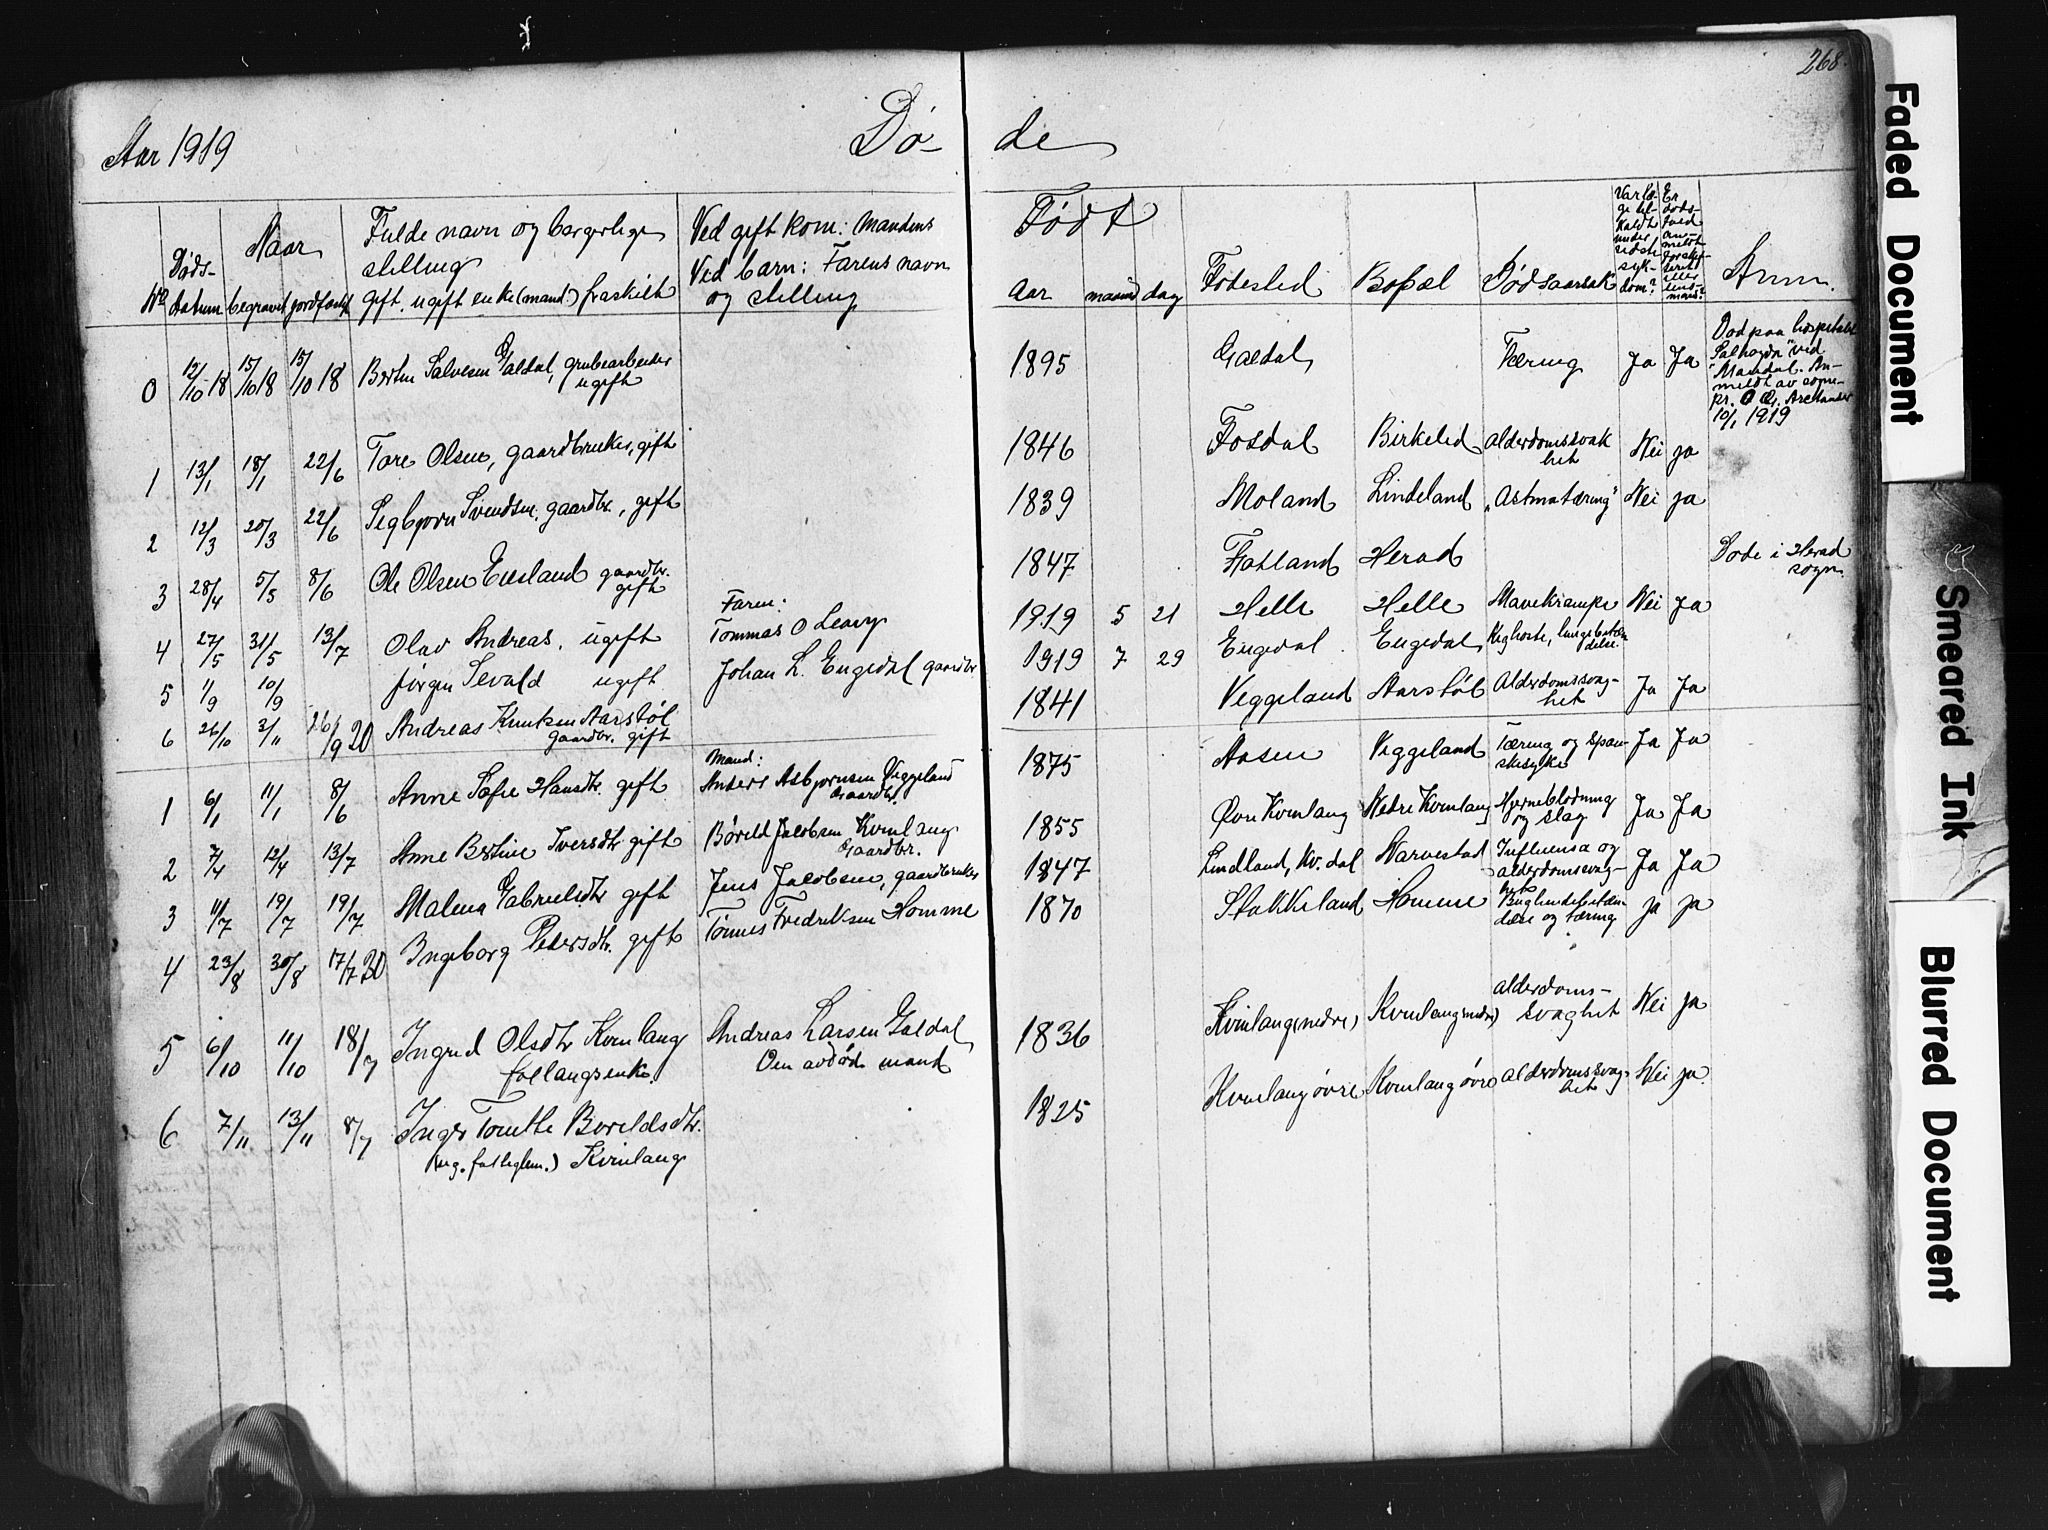 268.
Aar 1919 Dø- de
Naar Fulde navn og borgerlige Ved gift kone: Mandens Født
stilling Ved barn: Farens navn
No Døds-datum begravet jordfæstet gift. ugift enke(mand.) fraskilt og stilling Aar maaned dag Fødested Bopæl Dødsaarsak Var læge tilkaldt under sidste sykdom? Er dødsfald anmeldt for skifteret eller lensmand? Anm.
0 12/10 18 15/10 18 15/10 18 Salvesen Galdal, grubearbeider ugift 1895 Galdal Tæring Ja Ja Død paa hospitalet
ved
Mandal. An-
meldt av sogne-
pr.
10/1 1919
1 13/1 18/1 22/6 Tore Olsen, gaardbruker, gift 1846 Fosdal Birkeled Alderdomssvak
het Nei Ja
2 12/3 20/3 22/6 Segbjørn Svendsen, gaardbr., gift 1839 Moland Lindeland "Astmatæring" Nei Ja
3 28/4 5/5 8/6 Ole Olsen gaardbr.
gift 1847 Flatland Herad Døde i Herad
sogn.
4 27/5 31/5 13/7 Olav Andreas, ugift Faren:
Tommas O 1919 5 21 Helle Helle Mavekrampe Nei Ja
5 1/9 10/9 Jørgen Sevald ugift Johan L. Engedal gaardbr. 1919 7 29 Engedal Engedal Kighoste, lungebetæn
delse.
6 26/10 3/11 26/9 20 Andreas Knutsen Aarstøl
gaardbr. gift 1841 Veggeland Aarstøl Alderdomssvag-
het Ja Ja
1 6/1 11/1 8/6 Anne Sofie Hansdtr. gift Mand:
Anders Asbjørnsen Veggeland
Gaardbr. 1875 Aasen Veggeland Tæring og span-
skesyke Ja Ja
2 7/4 12/4 13/7 Anne Bertine Iversdtr gift Børeld Jacobsen Kvinlaug
Gaardbr. 1855 Øvre Kvinlaug Nedre Kvinlaug Hjerneblødning
og slag Ja Ja
3 11/7 19/7 19/7 Malena Gabrielsdtr gift Jens Jacobsen, gaardbruker 1847 Lindland, Kv. dal Narvestad Influensa og
alderdomssvag-
het Ja Ja
4 23/8 30/8 17/7 20 Ingeborg Pedersdtr. gift Tønnes Fredriksen Homme 1870 Stakkeland Homme
og tæring ja ja
5 6/10 11/10 18/7 Ingrid Olsdtr Kvinlaug
føllaugsenke. Andreas Larsen Galdal
Om avdøde mand 1836 Kvinlaug(nedre) Kvinlaug(nedre) alderdoms-
svaghet Nei ja
6 7/11 13/11 8/7 Inger Tomette Boreldsdtr.
(ug. fattiglem.) Kvinlaug 1825 Kvinlaug øvre Kvinlaug øvre alderdomssvag-
het Nei ja
Faded Document
Smeared Ink
Blurred Document